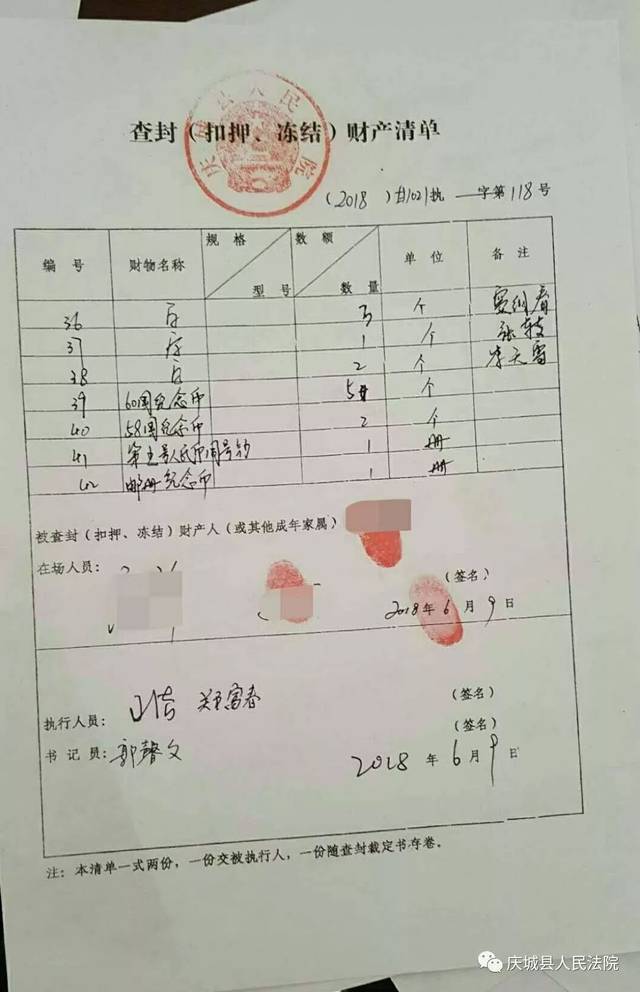 查封（扣押、冻结）财产清单
（2018）甘1021执 字第118号
编号 财物名称 规格 型号 数额 数量 单位 备注
36 3 个
37 1 个
38 2 个
39 60周纪念币 5 个
40 58周纪念币 2 个
41 第五号人民币同号钞 1 册
42 邮册纪念币 1 册
被查封（扣押、冻结）财产人（或其他成年家属）
在场人员：
（签名）
2018年6月9日
执行人员： 郑富春 （签名）
（签名）
书记员：郭馨文
2018年6月9日
注：本清单一式两份，一份交被执行人，一份随查封裁定书存卷。
庆城县人民法院